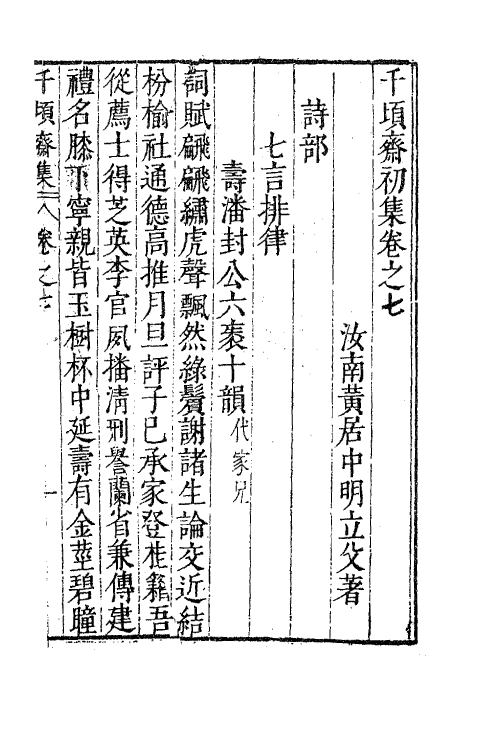 千頃齋初集卷之七
汝南黃居中明立父著
詩部
七言排律
壽潘封公六袠十韻代家兄
詞賦翩翩繡虎聲飄然綠鬢謝諸生論交近結
枌榆社通德高推月旦評子已承家登桂籍吾
從薦士得芝英李官夙播清刑譽蘭省兼傳建
禮名膝下寧親皆玉樹杯中延壽有金莖碧瞳
千頃齋集 卷之七 一